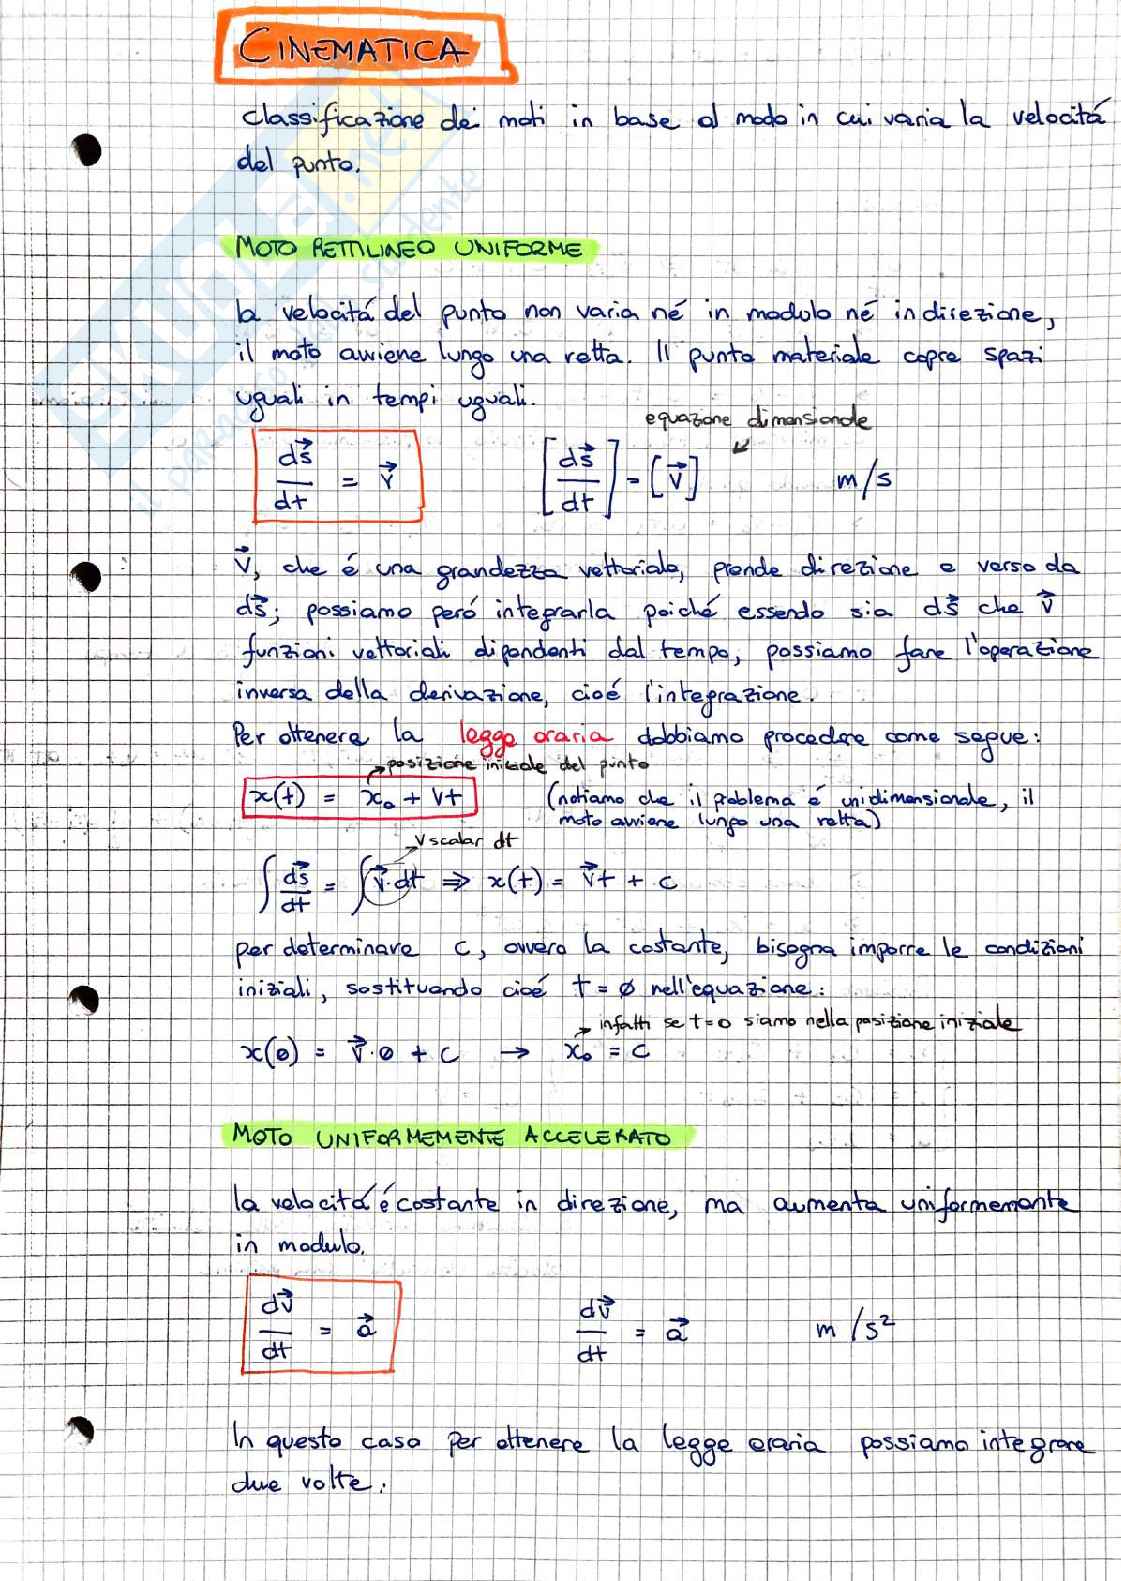 CINEMATICA
classificazione dei moti in base al modo in cui varia la velocitá
del punto.
MOTO RETTILINEO UNIFORME
la velocitá del punto non varia né in modulo né in direzione,
il moto avviene lungo una retta. Il punto materiale copre spazi
uguali in tempi uguali.
equazione dimensionale
ds⃗/dt = v⃗ [ds⃗/dt] = [v⃗] m/s
v⃗, che é una grandezza vettoriale, prende direzione e verso da
ds⃗; possiamo peró integrarla poiché essendo sia ds⃗ che v⃗
funzioni vettoriali dipendenti dal tempo, possiamo fare l'operazione
inversa della derivazione, cioé l'integrazione.
Per ottenere la legge oraria dobbiamo procedere come segue:
→ posizione iniziale del punto
x(t) = x₀ + vt (notiamo che il problema é unidimensionale, il
moto avviene lungo una retta)
→ v scalar dt
∫ ds⃗/dt = ∫ v⃗·dt ⇒ x(t) = v⃗t + c
per determinare c, ovvero la costante, bisogna imporre le condizioni
iniziali, sostituendo cioé t = ∅ nell'equazione:
→ infatti se t=0 siamo nella posizione iniziale
x(0) = v⃗·0 + c → x₀ = c
MOTO UNIFORMEMENTE ACCELERATO
la velocitá é costante in direzione, ma aumenta uniformemente
in modulo.
dv⃗/dt = a⃗ dv⃗/dt = a⃗ m/s²
In questo caso per ottenere la legge oraria possiamo integrare
due volte.